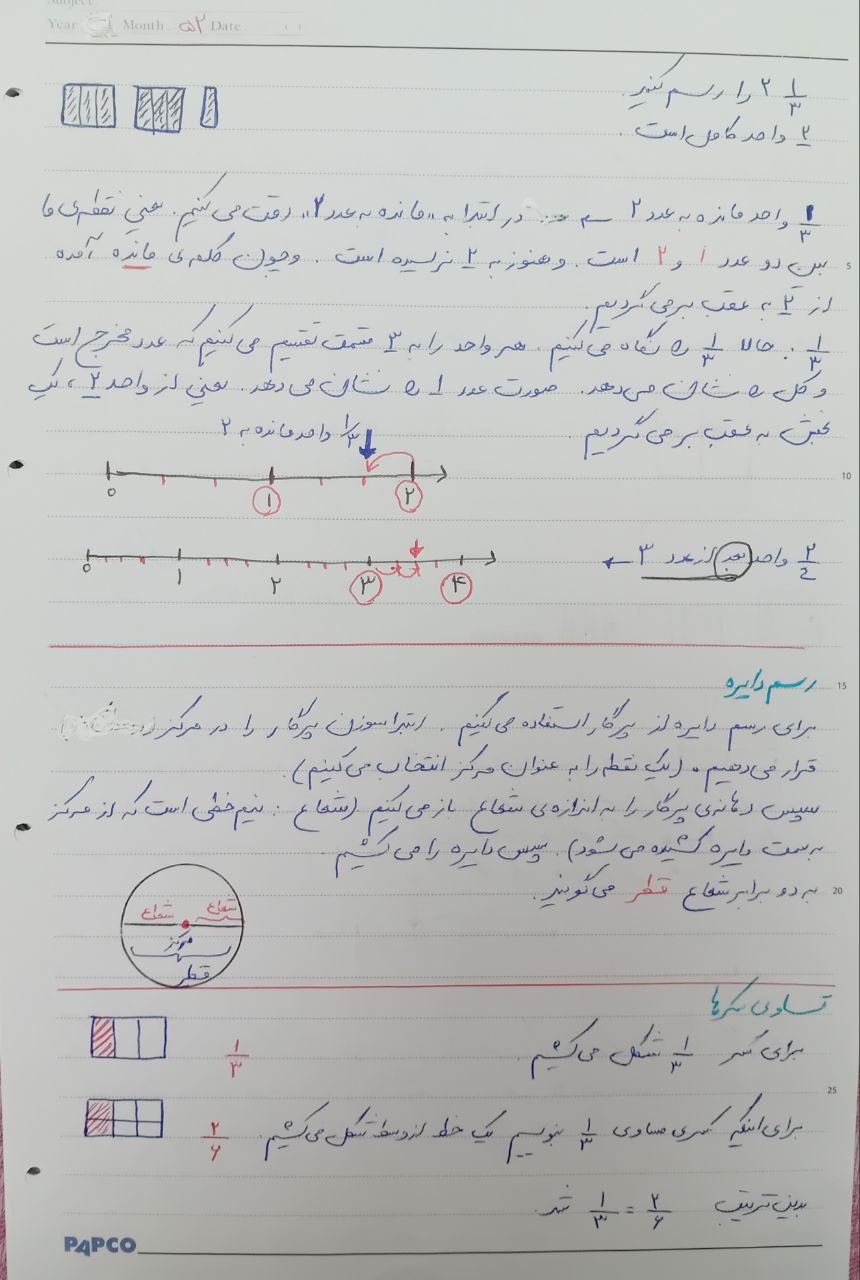 Subject:
Year Month. ۵۲ Date. ( )
۲ ۱/۳ را رسم کنید.
۲ واحد کامل است.
۱/۳ واحد مانده به عدد ۲ ← در ابتدا به «مانده به عدد ۲» دقت می کنیم. یعنی نقطه ی ما
بین دو عدد ۱ و ۲ است. و هنوز به ۲ نرسیده است. و چون کلمه ی مانده آمده
از ۲ به عقب بر می گردیم.
۱/۳ . حالا ۱/۳ را نگاه می کنیم. هر واحد را به ۳ قسمت تقسیم می کنیم که عدد مخرج است
و کل را نشان می دهد. صورت عدد ۱ را نشان می دهد. یعنی از واحد ۲، یک
بخش به عقب بر می گردیم
۱/۳ واحد مانده به ۲
۰ ۱ ۲
۲/۴ واحد بعد از عدد ۳ ←
۰ ۱ ۲ ۳ ۴
رسم دایره
برای رسم دایره از پرگار استفاده می کنیم. ابتدا سوزن پرگار را در مرکز
قرار می دهیم. (یک نقطه را به عنوان مرکز انتخاب می کنیم)
سپس دهانه ی پرگار را به اندازه ی شعاع باز می کنیم (شعاع: نیم خطی است که از مرکز
به سمت دایره کشیده می شود). سپس دایره را می کشیم.
به دو برابر شعاع قطر می گویند.
شعاع شعاع
مرکز
قطر
تساوی کسرها
برای کسر ۱/۳ شکل می کشیم. ۱/۳
برای اینکه کسری مساوی ۱/۳ بنویسیم یک خط از وسط شکل می کشیم. ۲/۶
بدین ترتیب ۱/۳ = ۲/۶ شد.
5
10
15
20
25
PAPCO